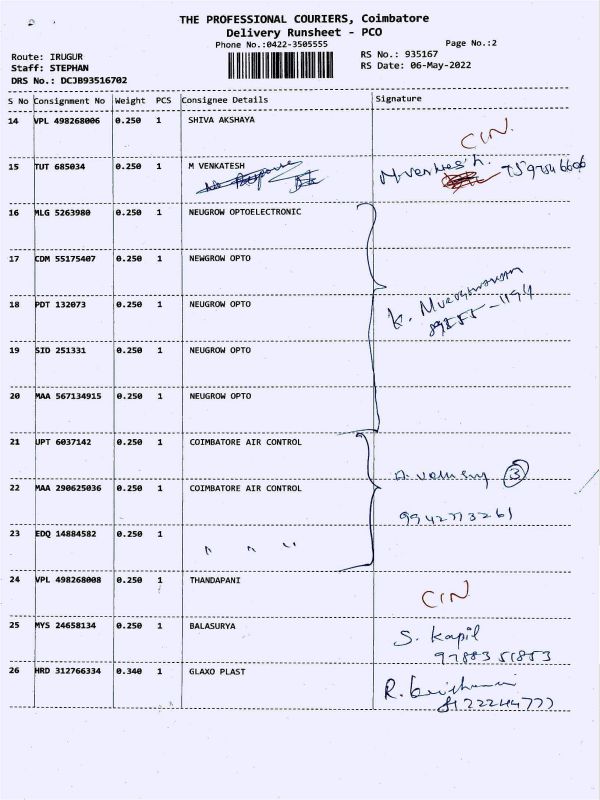 THE PROFESSIONAL COURIERS, Coimbatore
Delivery Runsheet - PCO
Phone No.:0422-3505555
Page No.:2
Route: IRUGUR
RS No.: 935167
Staff: STEPHAN
RS Date: 06-May-2022
DRS No.: DCJB93516702
S No Consignment No Weight PCS Consignee Details Signature
14 VPL 498268006 0.250 1 SHIVA AKSHAYA
CIN.
15 TUT 685034 0.250 1 M VENKATESH
16 MLG 5263980 0.250 1 NEUGROW OPTOELECTRONIC
17 CDM 55175407 0.250 1 NEWGROW OPTO
18 PDT 132073 0.250 1 NEUGROW OPTO
K.
19 SID 251331 0.250 1 NEUGROW OPTO
20 MAA 567134915 0.250 1 NEUGROW OPTO
21 UPT 6037142 0.250 1 COIMBATORE AIR CONTROL
3
22 MAA 290625036 0.250 1 COIMBATORE AIR CONTROL
9942773261
23 EDQ 14884582 0.250 1 " " "
24 VPL 498268008 0.250 1 THANDAPANI
CIN
25 MYS 24658134 0.250 1 BALASURYA
S. Kapil
9788351853
26 HRD 312766334 0.340 1 GLAXO PLAST
R.
8122244777